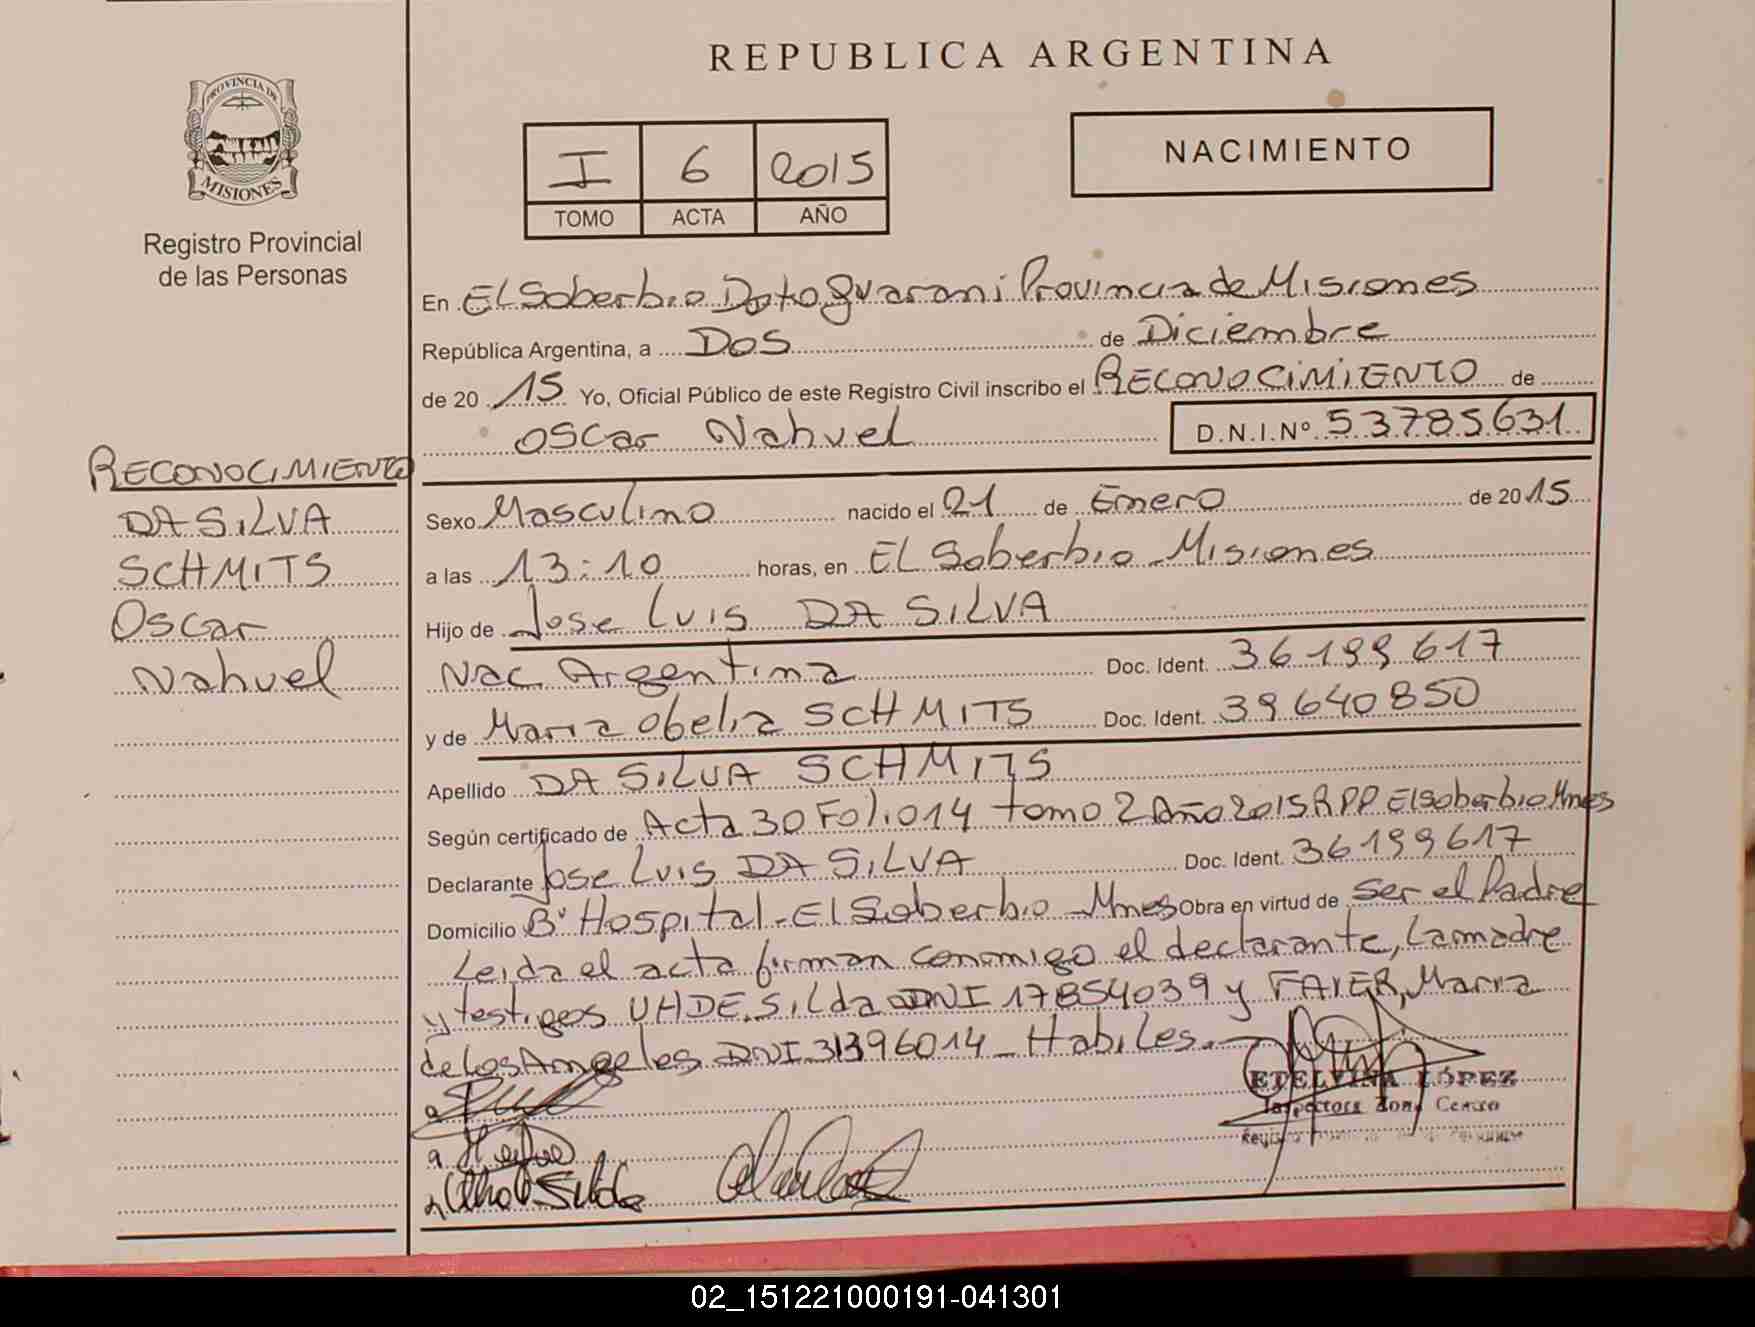 REPUBLICA ARGENTINA
PROVINCIA DE
MISIONES
Registro Provincial
de las Personas
I 6 2015
TOMO ACTA AÑO
NACIMIENTO
En El Soberbio Dpto Guarani Provincia de Misiones
República Argentina, a Dos de Diciembre
de 20 15 Yo, Oficial Público de este Registro Civil inscribo el RECONOCIMIENTO de
Oscar Nahuel D.N.I.Nº 53785631
RECONOCIMIENTO
DA SILVA
SCHMITS
Oscar
Nahuel
Sexo Masculino nacido el 21 de Enero de 2015
a las 13:10 horas, en El Soberbio - Misiones
Hijo de Jose Luis DA SILVA
Nac. Argentina Doc. Ident. 36199617
y de Maria Obelia SCHMITS Doc. Ident. 39640850
Apellido DA SILVA SCHMITS
Según certificado de Acta 30 Fol. 014 tomo 2 Año 2015 RPP El Soberbio Mnes
Declarante Jose Luis DA SILVA Doc. Ident. 36199617
Domicilio Bº Hospital - El Soberbio - Mnes Obra en virtud de ser el Padre
Leida el acta firman conmigo el declarante, la madre
y testigos UHDE, Silda DNI 17854039 y FAIER, Maria
de Los Angeles DNI 31396014 - Habiles.-
ETELVINA LÓPEZ
Inspectora Zona Centro
02_151221000191-041301